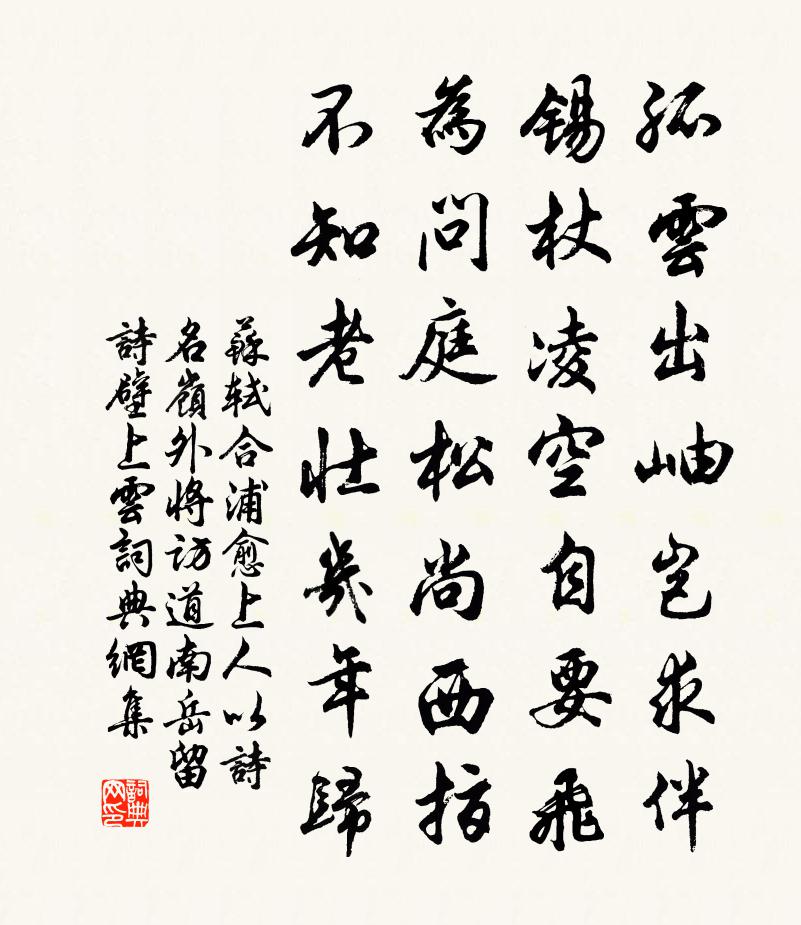 孤雲出岫豈求伴
錫杖凌空自要飛
為問庭松尚西指
不知老壯幾年歸
蘇軾合浦愈上人以詩
名嶺外將訪道南岳留
詩壁上雲詞典網集
詞典網印